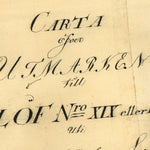 CARTA
öfwer
UTMARKEN
till
LÖF Nro XIX eller
uti